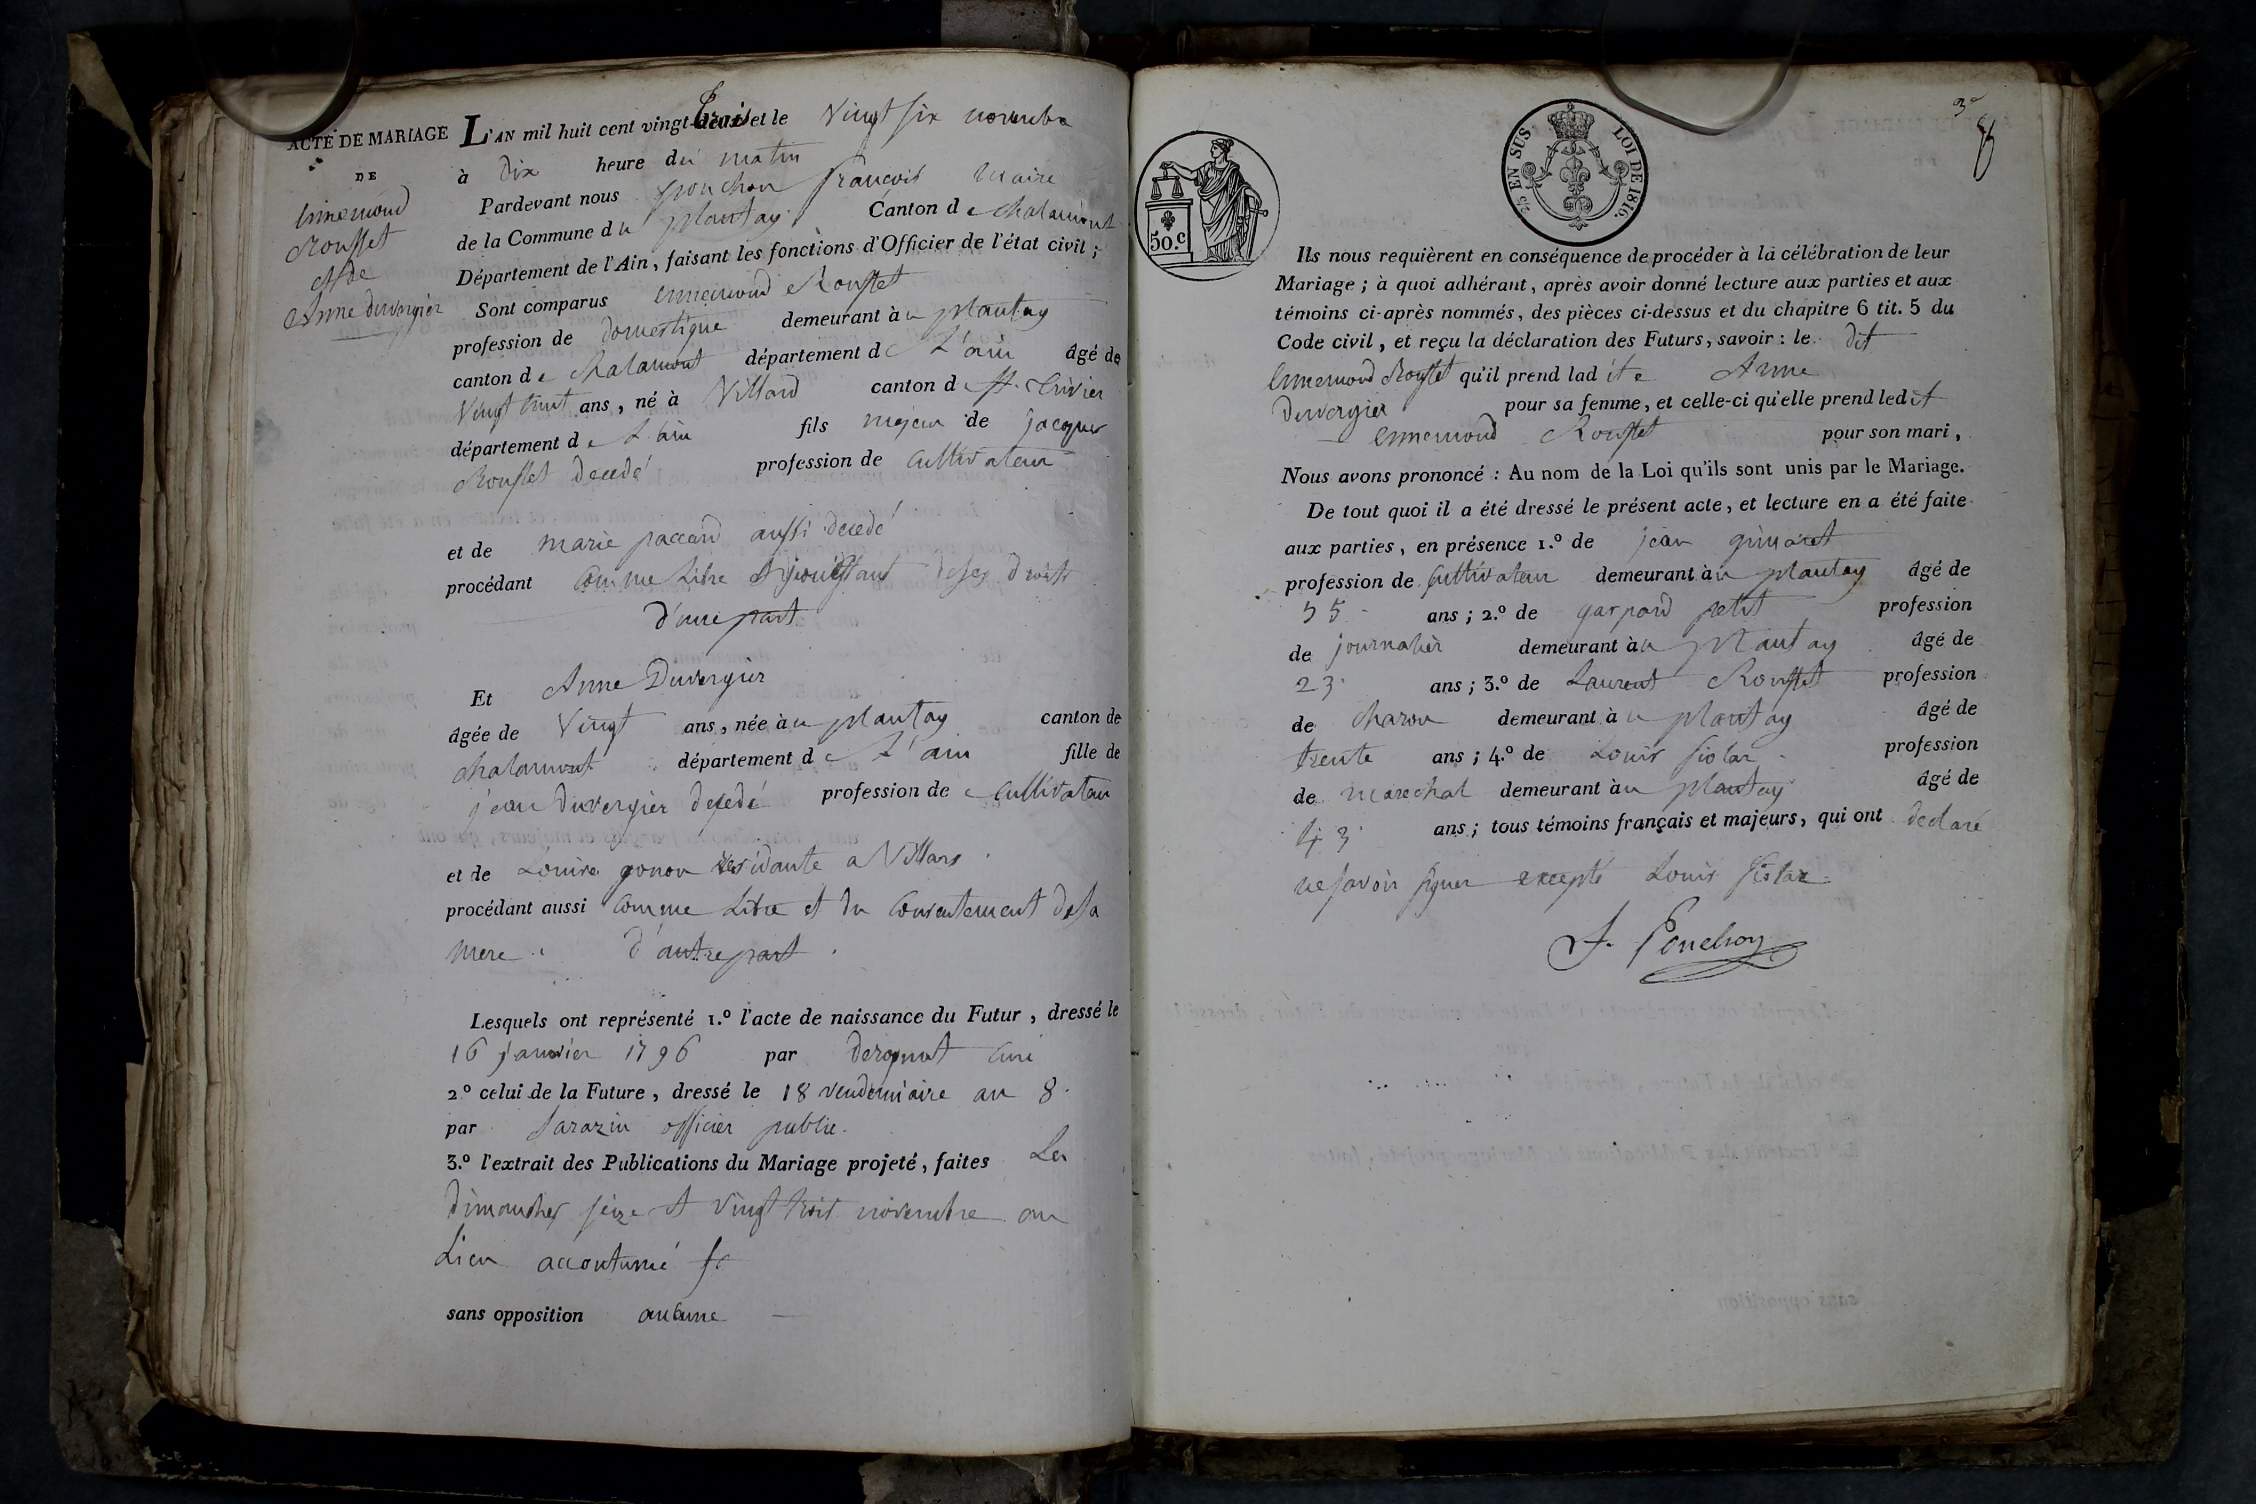 ACTE DE MARIAGE
DE
Ennemond
Rousset
et de
Anne duvergier
L'AN mil huit cent vingt-trois et le vingt six novembre
à dix heure du matin
Pardevant nous ponchon françois maire
de la Commune du plantay Canton de chalamont
Département de l'Ain, faisant les fonctions d'Officier de l'état civil;
Sont comparus ennemond Rousset
profession de domestique demeurant àu plantay
canton de chalamont département de L'ain âgé de
vingt huit ans, né à Villard canton de st. trivier
département de L'ain fils majeur de jacques
Rousset decedé profession de cultivateur
et de marie paccard aussi decedé
procédant comme Libre et jouissant de ses droits
d'une part
Et Anne Duvergier
âgée de vingt ans, née àu plantay canton de
chalamont département de L'ain fille de
jean duvergier decedé profession de cultivateur
et de Louise gonon residante a Villars
procédant aussi comme Libre et du consentement de sa
mere d'autre part
Lesquels ont représenté 1.º l'acte de naissance du Futur, dressé le
16 janvier 1796 par curé
2.º celui de la Future, dressé le 18 vendemiaire an 8.
par Sarazin officier public.
3.º l'extrait des Publications du Mariage projeté, faites Les
dimanches seize et vingt trois novembre au
Lieu accoutumé
sans opposition aucune
50.c
25 EN SUS
LOI DE 1816.
Ils nous requièrent en conséquence de procéder à la célébration de leur
Mariage; à quoi adhérant, après avoir donné lecture aux parties et aux
témoins ci-après nommés, des pièces ci-dessus et du chapitre 6 tit. 5 du
Code civil, et reçu la déclaration des Futurs, savoir: le dit
Ennemond Rousset qu'il prend ladite Anne
Duvergier pour sa femme, et celle-ci qu'elle prend ledit
ennemond Rousset pour son mari,
Nous avons prononcé: Au nom de la Loi qu'ils sont unis par le Mariage.
De tout quoi il a été dressé le présent acte, et lecture en a été faite
aux parties, en présence 1.º de jean
profession de cultivateur demeurant àu plantay âgé de
35 ans; 2.º de gaspard petit profession
de journalier demeurant àu plantay âgé de
23 ans; 3.º de Laurent Rousset profession
de charon demeurant àu plantay âgé de
trente ans; 4.º de Louis fiolar profession
de marechal demeurant àu plantay âgé de
43 ans; tous témoins français et majeurs, qui ont declaré
ne savoir signer excepté Louis fiolar
f. Ponchon